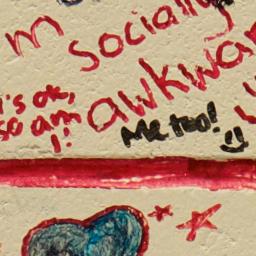 m socially
awkwar
's ok,
so am
I!
Me too!